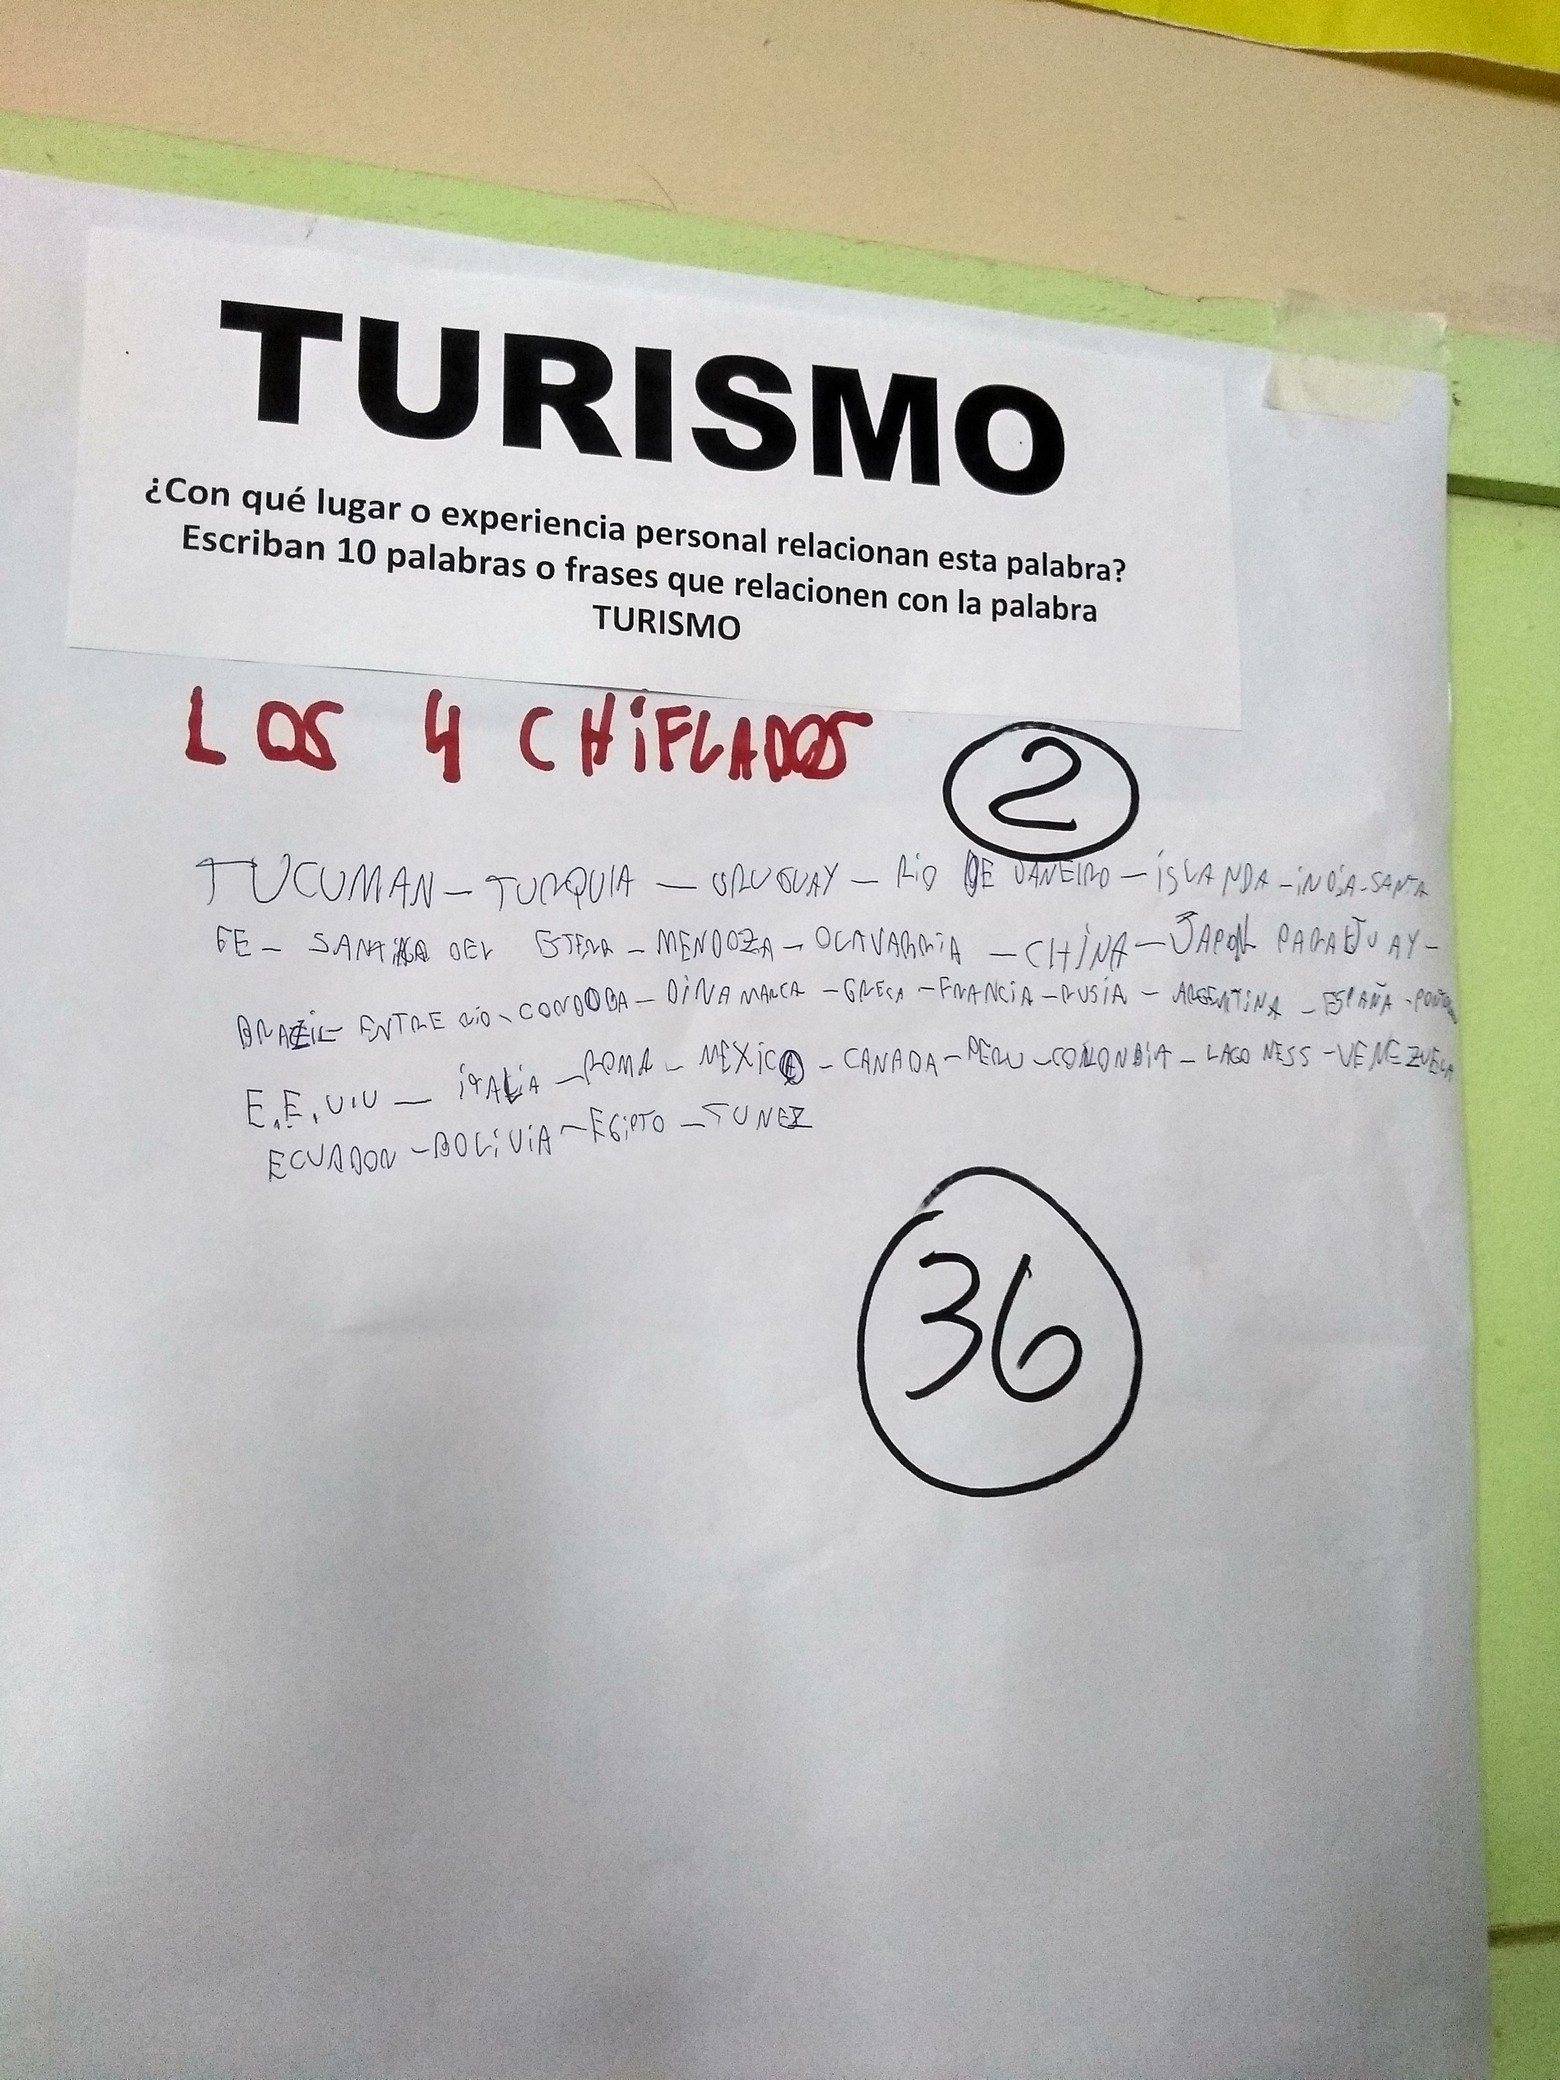 TURISMO
¿Con qué lugar o experiencia personal relacionan esta palabra?
Escriban 10 palabras o frases que relacionen con la palabra
TURISMO
LOS 4 CHiFLADOS
2
TUCUMAN - TURQUIA - URUGUAY - RiO DE JANEIRO - iSLANDA - iNDiA - SANTA
FE - SANTiAGO DEL ESTERO - MENDOZA - OLAVARRiA - CHiNA - JAPON PARAGUAY -
BRAZiL - ENTRE RiO - CORDOBA - DiNAMARCA - GRECA - FRANCiA - RUSiA - ARGENTiNA - ESPAÑA -
E.E.UU - iTALiA - ROMA - MEXiCO - CANADA - PERU - COLONBiA - LAGO NESS - VENEZUELA
ECUADOR - BOLiViA - EGiPTO - TUNEZ
36